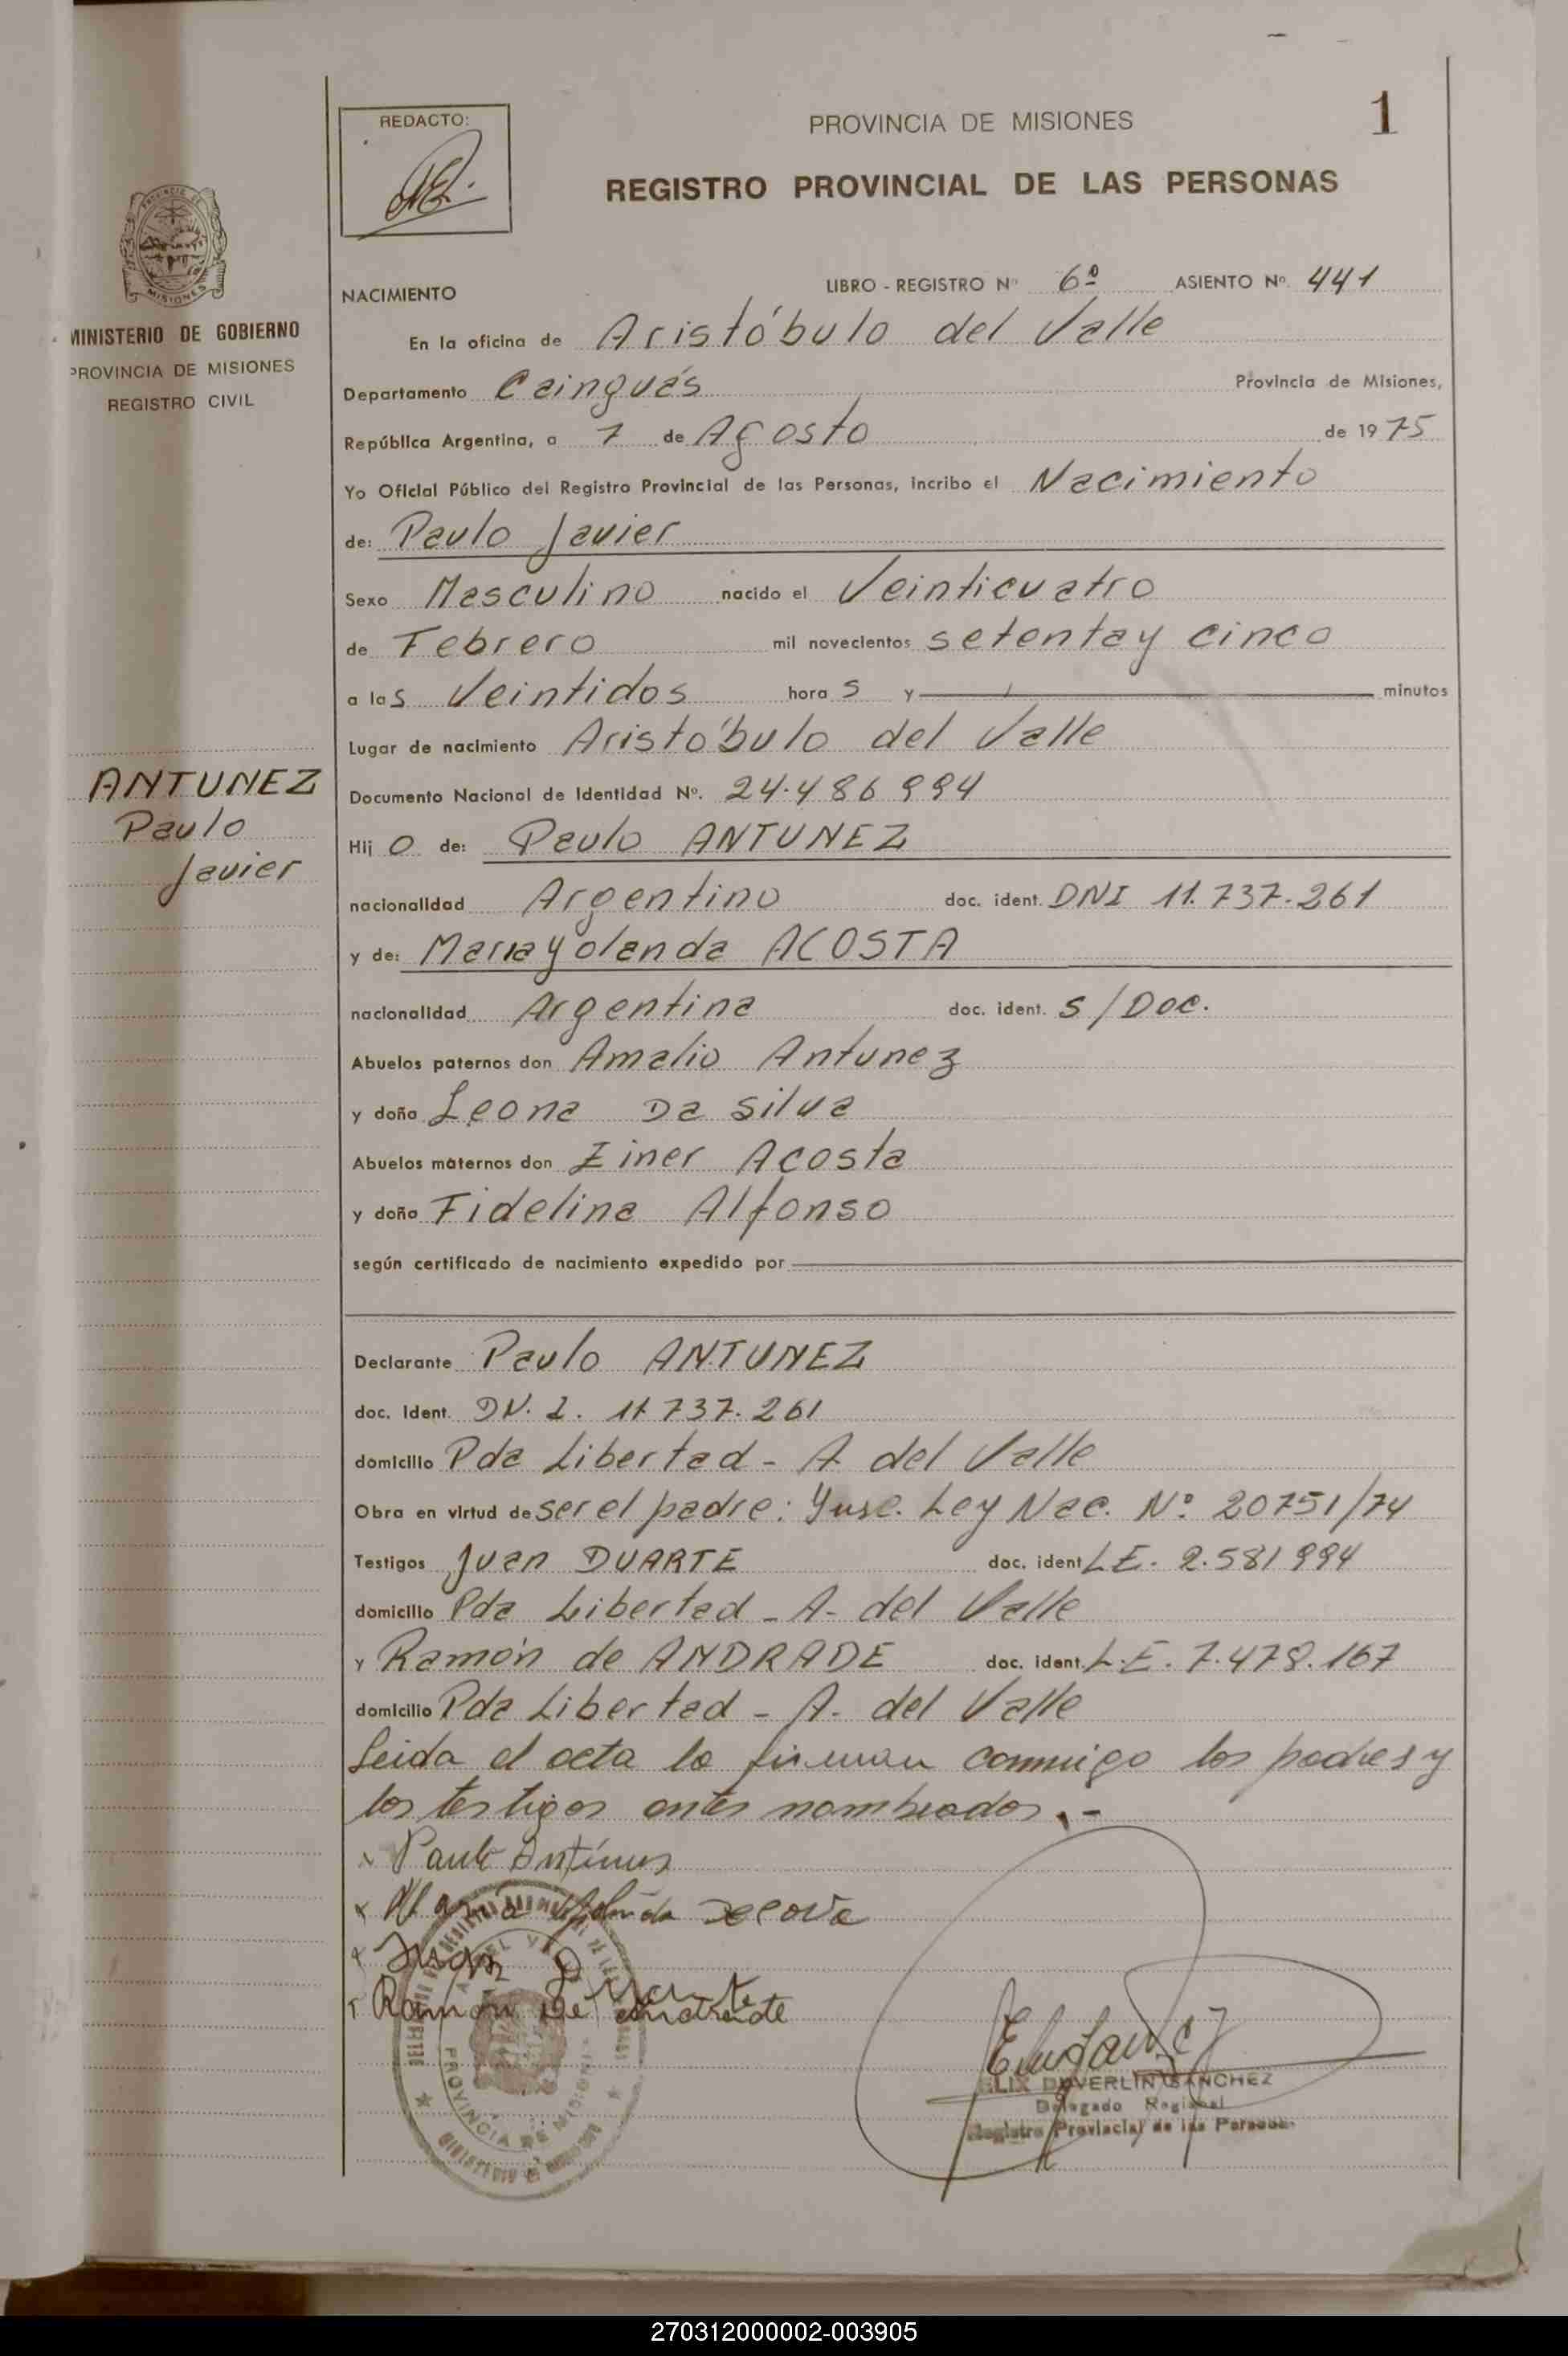 1
REDACTO:
PROVINCIA DE MISIONES
REGISTRO PROVINCIAL DE LAS PERSONAS
MISIONES
MINISTERIO DE GOBIERNO
PROVINCIA DE MISIONES
REGISTRO CIVIL
NACIMIENTO
LIBRO - REGISTRO Nº 6º ASIENTO Nº. 441
En la oficina de Aristóbulo del Valle
Departamento Cainguás Provincia de Misiones,
República Argentina, a 7 de Agosto de 1975
Yo Oficial Público del Registro Provincial de las Personas, incribo el Nacimiento
de: Paulo Javier
Sexo Masculino nacido el Veinticuatro
de Febrero mil novecientos setenta y cinco
a las Veintidos horas y minutos
Lugar de nacimiento Aristóbulo del Valle
ANTUNEZ
Paulo
Javier
Documento Nacional de Identidad Nº. 24.486 994
Hijo de: Paulo ANTUNEZ
nacionalidad Argentino doc. ident. DNI 11.737.261
y de: Maria Yolanda ACOSTA
nacionalidad Argentina doc. ident. S/Doc.
Abuelos paternos don Amalio Antunez
y doña Leona Da Silva
Abuelos maternos don Einer Acosta
y doña Fidelina Alfonso
según certificado de nacimiento expedido por
Declarante Paulo ANTUNEZ
doc. Ident. DN. I. 11 737.261
domicilio Pda Libertad - A. del Valle
Obra en virtud de ser el padre: Ynsc. Ley Nac. Nº 20751/74
Testigos Juan DUARTE doc. ident LE. 2.581 994
domicilio Pda Libertad - A- del Valle
y Ramón de ANDRADE doc. ident. L.E. 7.478.167
domicilio Pda Libertad - A- del Valle
Leida el acta la firman conmigo los padres y
los testigos antes nombrados.-
x Paulo Antunes
x Maria Yolanda
x Juan Duarte
x Ramón De andrade
PROVINCIA DE MISIONES
DUVERLIN SANCHEZ
Delegado Regional
Registro Provincial de las Personas
270312000002-003905